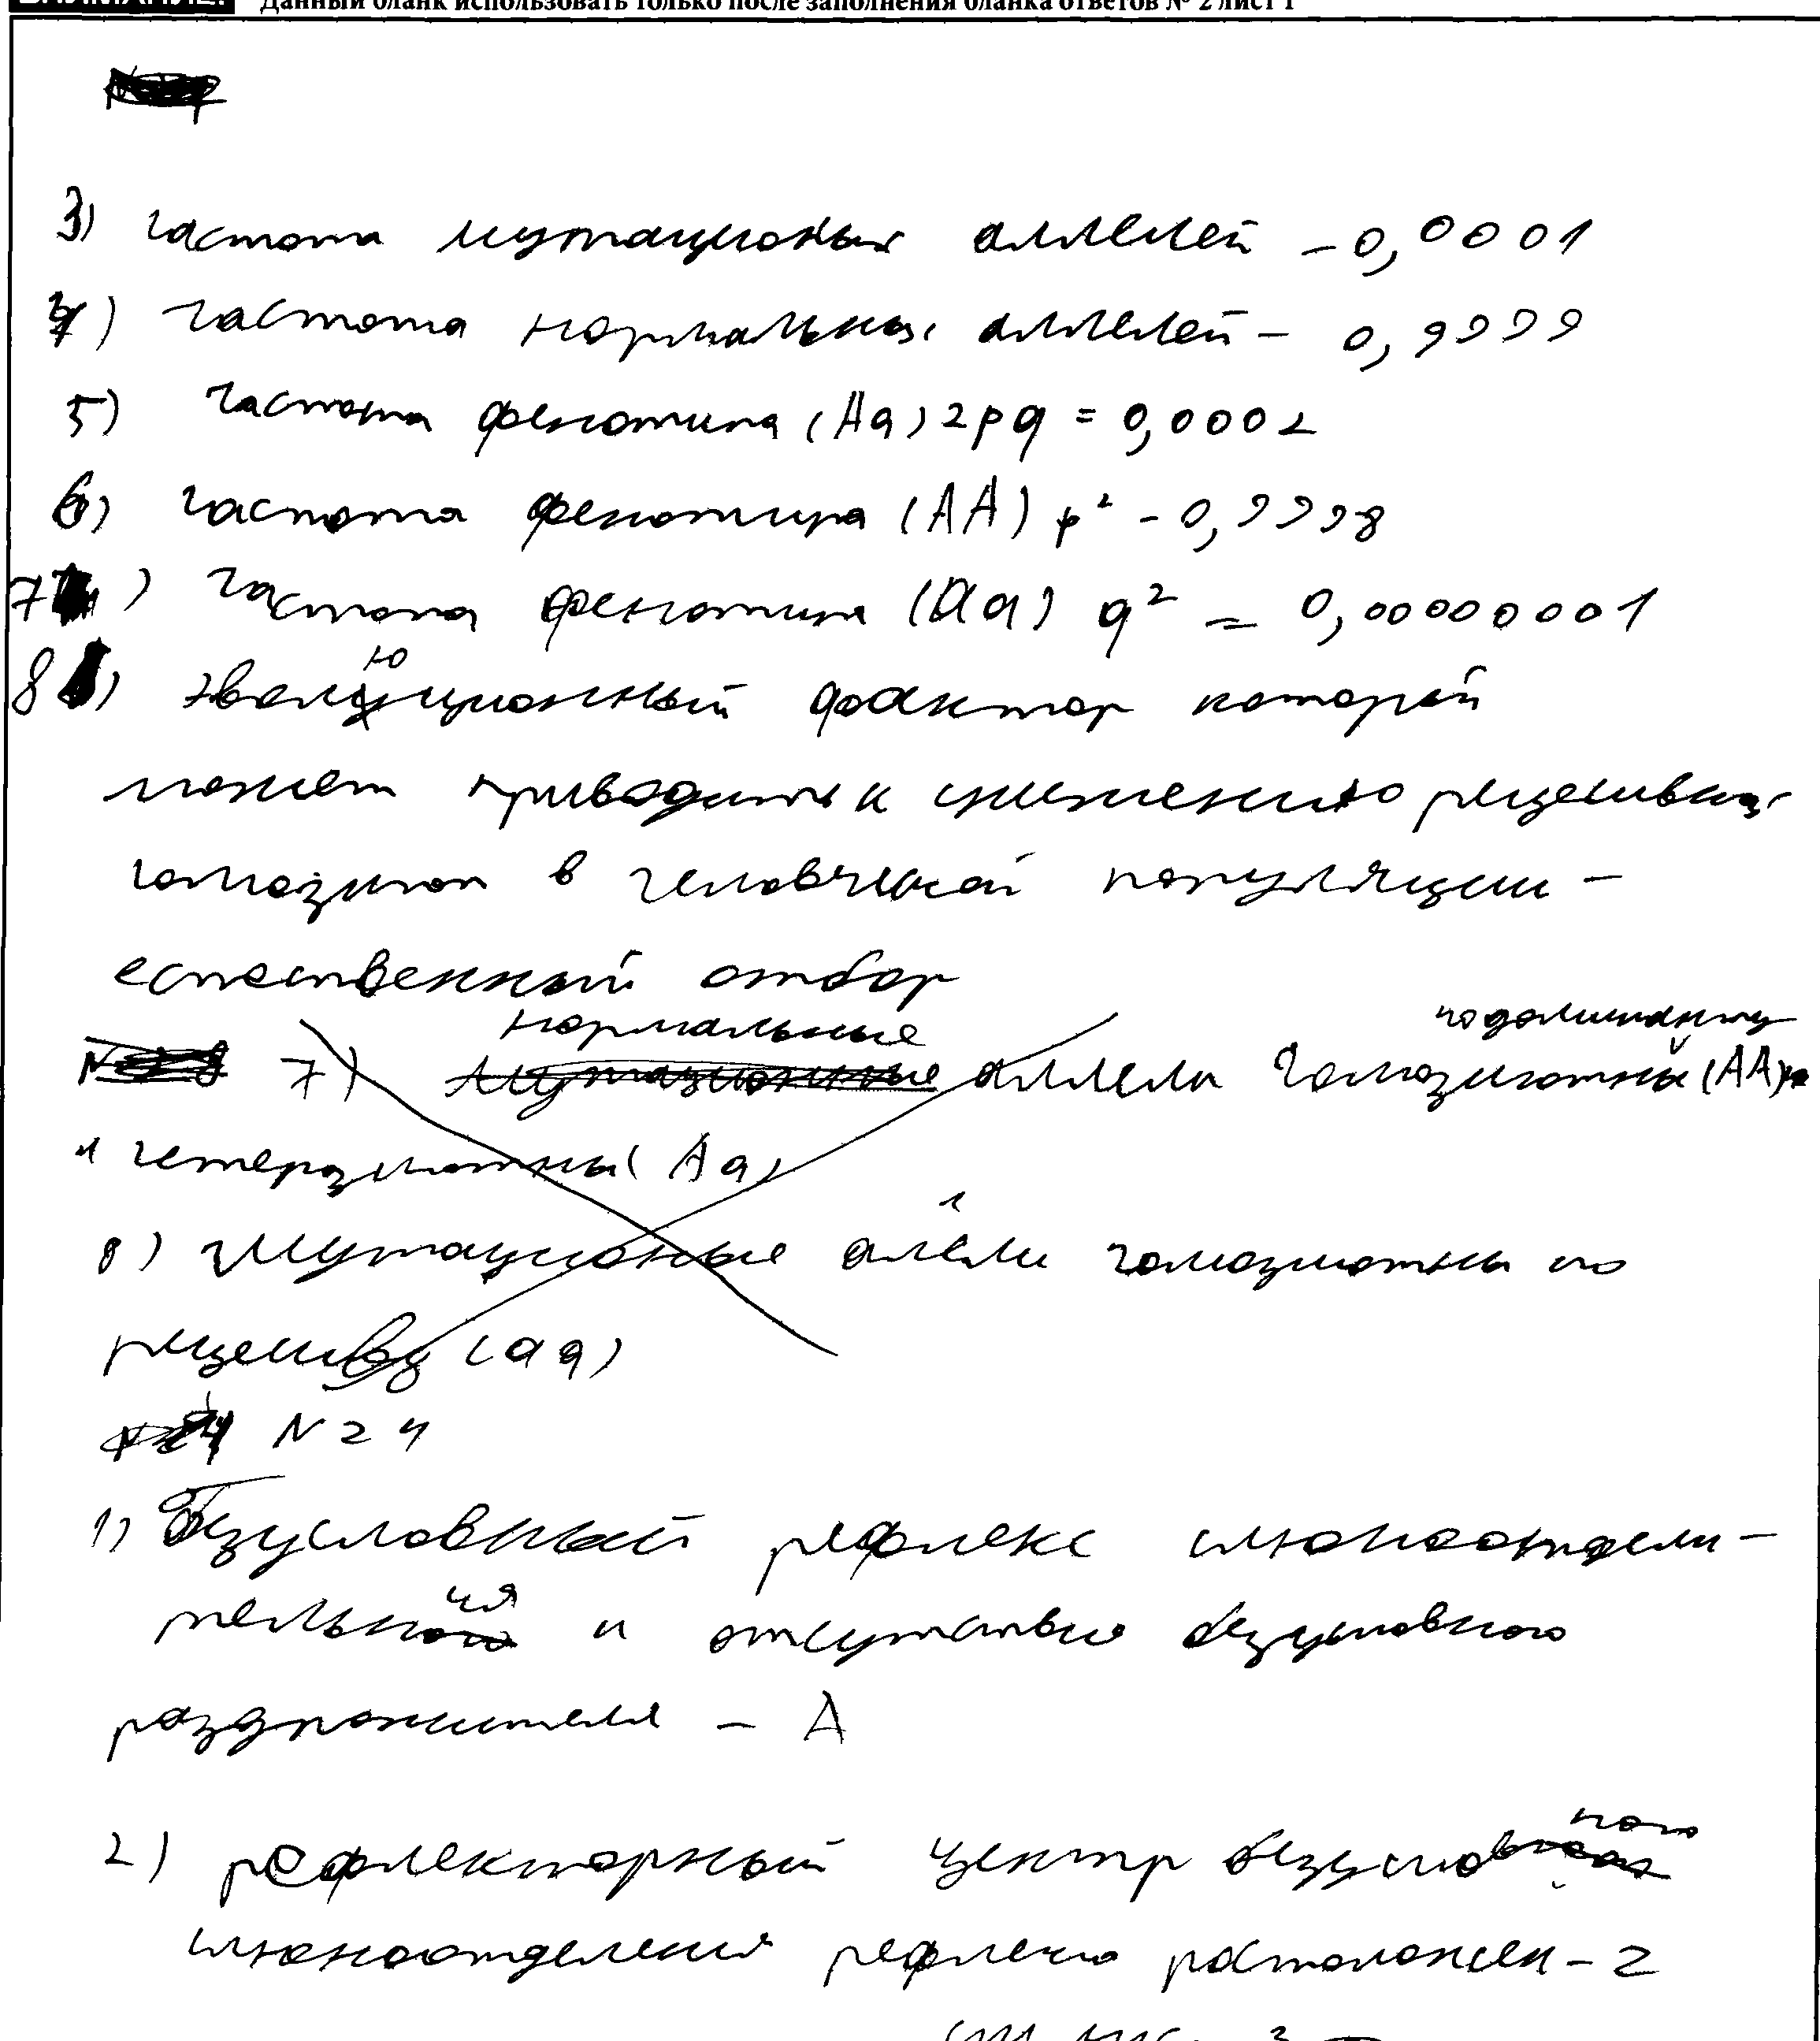 Данный бланк использовать только после заполнения бланка ответов № 2 лист 1
3) частота мутационых аллелей - 0,0001
4) частота нормальных аллелей - 0,9999
5) частота фенотипа (Aa) 2pq = 0,0002
6) частота фенотипа (AA) p² - 0,9998
7) частота фенотипа (aa) q² = 0,00000001
8) эволюционный фактор который
может приводить к снижению рецесивных
гомозигот в человеческой популяции -
естественный отбор
7) нормальные аллели гомозиготны по доминанту (AA)
и гетерозиготны (Aa)
8) Мутационые аллели гомозиготны по
рецесиву (aa)
N 24
1) Безусловный рефлекс слюноотдели-
тельния и отсутствие безусловного
раздражителя - A
2) рефлекторный центр безусловного
слюноотделения рефлекса расположен - 2